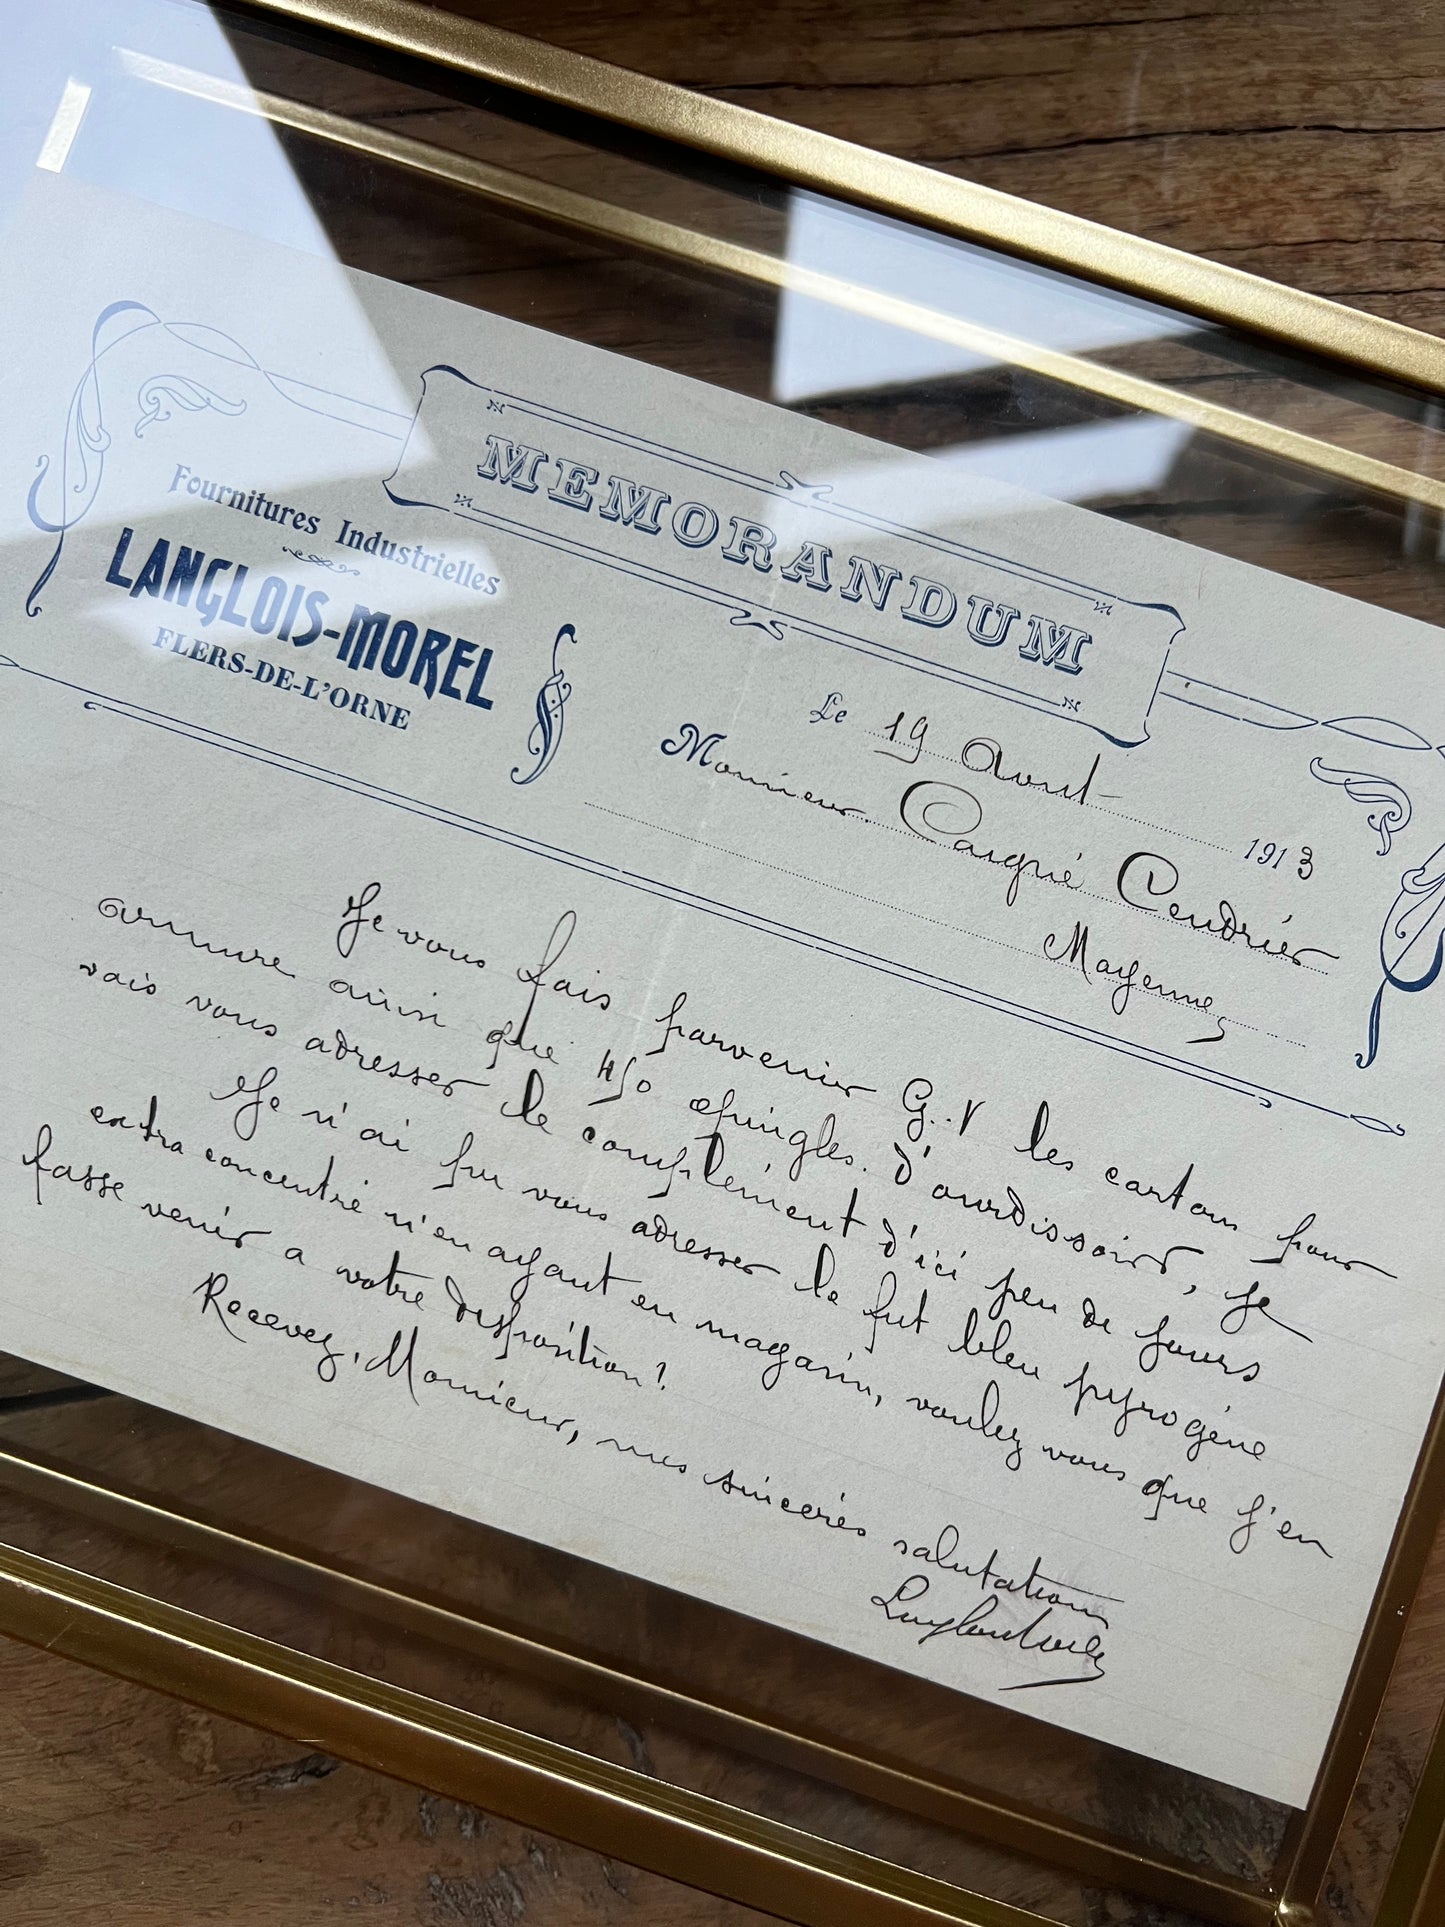 MEMORANDUM
Fournitures Industrielles
LANGLOIS-MOREL
FLERS-DE-L'ORNE
Le 19 Avril 1913
Monsieur Caigné Cendrier
Mayenne
Je vous fais parvenir G.V les cartons pour
armure ainsi que 450 épingles d'ourdissoirs, je
vais vous adresser le complément d'ici peu de jours
Je n'ai pu vous adresser le fut bleu pyrogène
extra concentré n'en ayant en magasin, voulez vous que j'en
fasse venir a votre disposition!
Recevez, Monsieur, mes sincères salutations